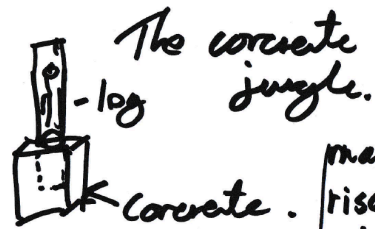 The concreate
jungle.
- log
concreate.
ma
rise